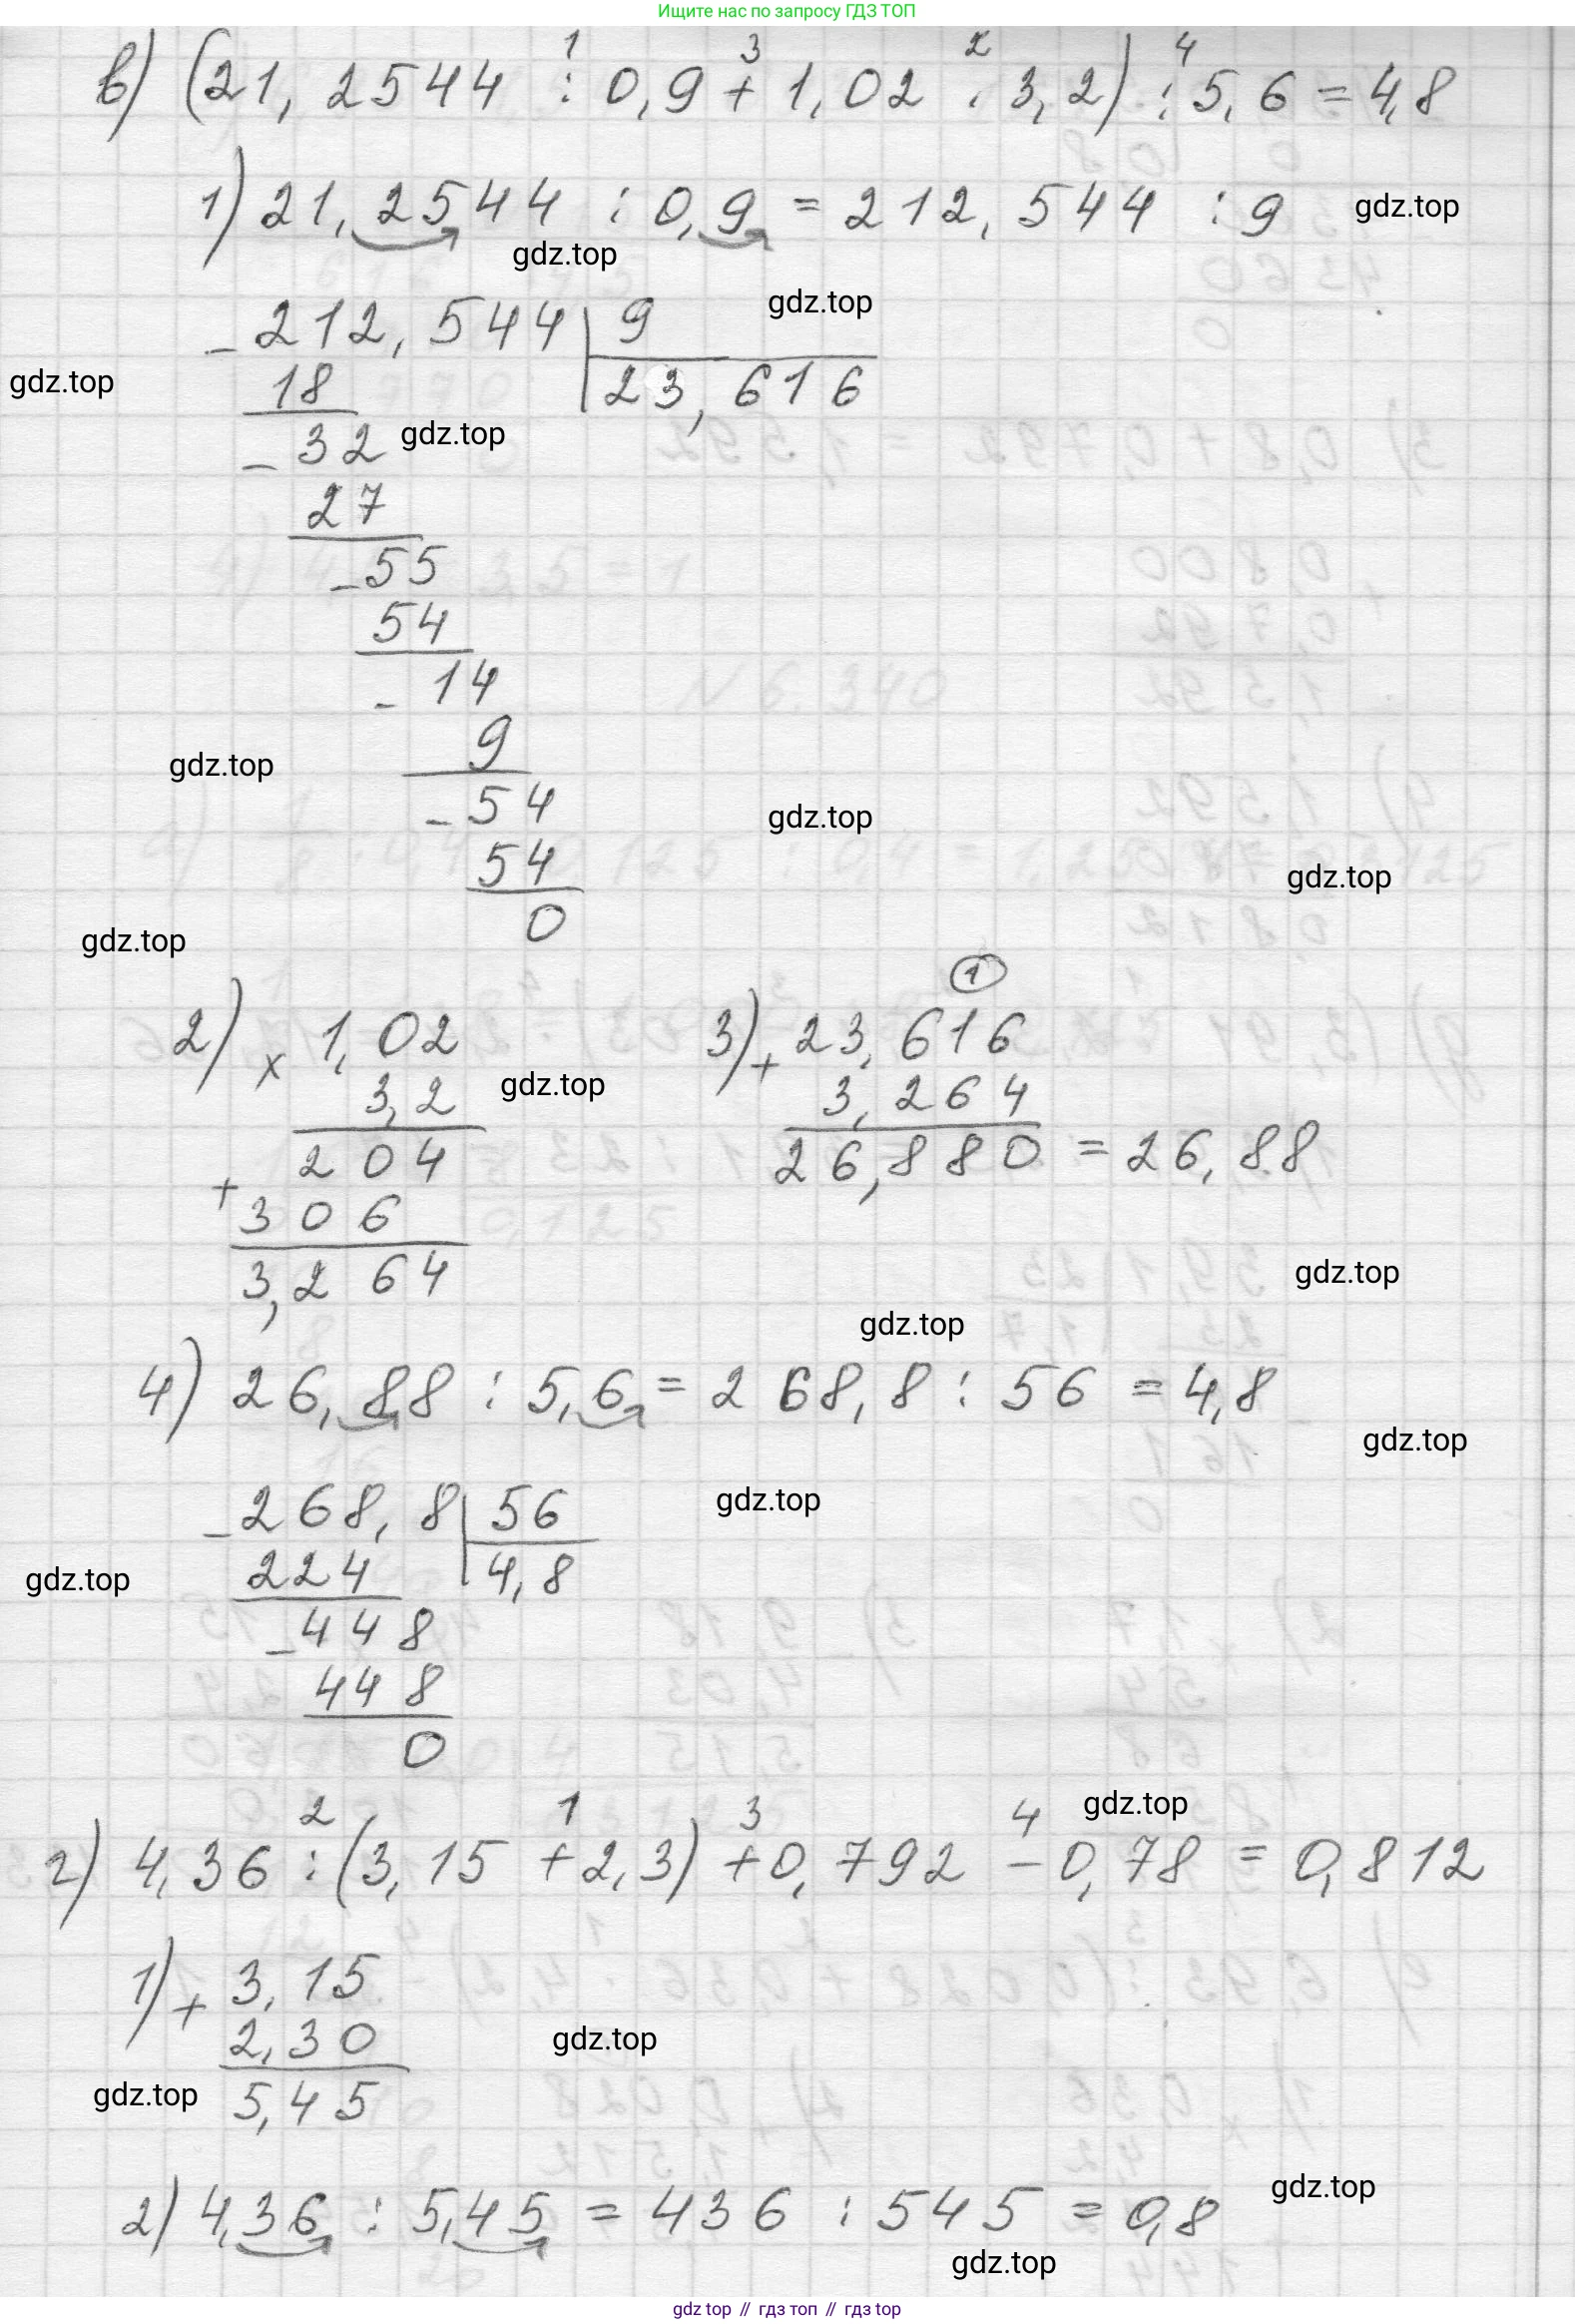 Ищите нас по запросу ГДЗ ТОП
1 3 2 4
в) (21,2544 : 0,9 + 1,02 · 3,2) : 5,6 = 4,8
1) 21,2544 : 0,9 = 212,544 : 9
gdz.top
gdz.top
gdz.top
- 212,544 | 9
gdz.top
18 23,616
- 32
gdz.top
27
- 55
54
- 14
9
gdz.top
- 54
gdz.top
54
gdz.top
0
gdz.top
1
2) × 1,02 3) + 23,616
3,2 3,264
gdz.top
204 26,880 = 26,88
+ 306
3,264
gdz.top
gdz.top
4) 26,88 : 5,6 = 268,8 : 56 = 4,8
gdz.top
- 268,8 | 56
gdz.top
224 4,8
gdz.top
- 448
448
0
gdz.top
2 1 3 4
г) 4,36 : (3,15 + 2,3) + 0,792 - 0,78 = 0,812
1) + 3,15
2,30
gdz.top
5,45
gdz.top
2) 4,36 : 5,45 = 436 : 545 = 0,8
gdz.top
gdz.top
gdz top // гдз топ // гдз top